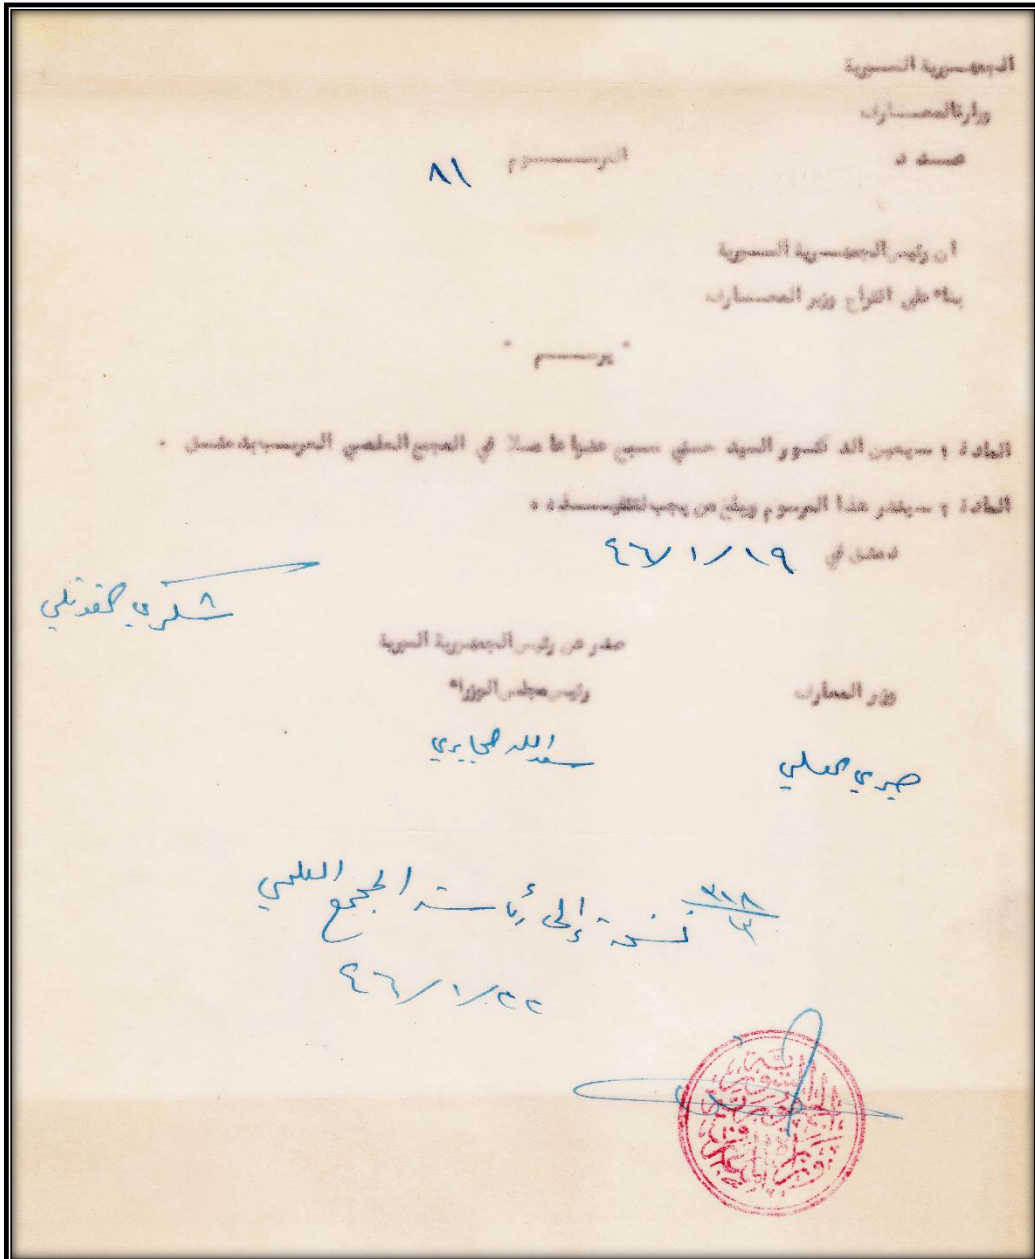 الجمهورية السورية
وزارة المعارف
عدد
المرسوم ٨١
ان رئيس الجمهورية السورية
بناء على اقتراح وزير المعارف
" يرسم "
المادة ١ – يعين الدكتور السيد حسني سبح عضوا عاملا في المجمع العلمي العربي بدمشق .
المادة ٢ – ينشر هذا المرسوم ويبلغ من يجب لتنفيذه
دمشق في ٤٦/١/١٩
شكري القوتلي
صدر عن رئيس الجمهورية السورية
وزير المعارف رئيس مجلس الوزراء
صبري العسلي سعد الله الجابري
٣١٨
٣
نسخة إلى رئاسة المجمع العلمي
٤٦/١/٢٢
الجمهورية السورية
وزارة المعارف